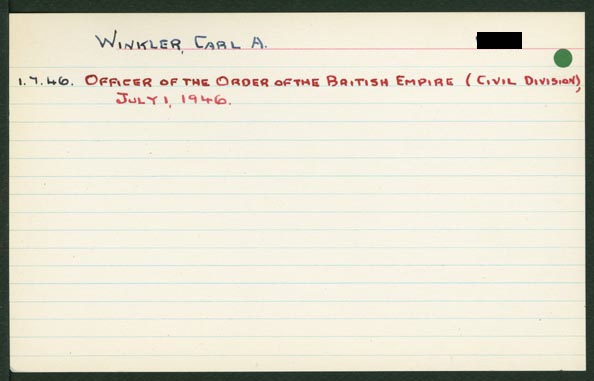 WINKLER, CARL A.
1.7.46. OFFICER OF THE ORDER OF THE BRITISH EMPIRE (CIVIL DIVISION),
JULY 1, 1946.